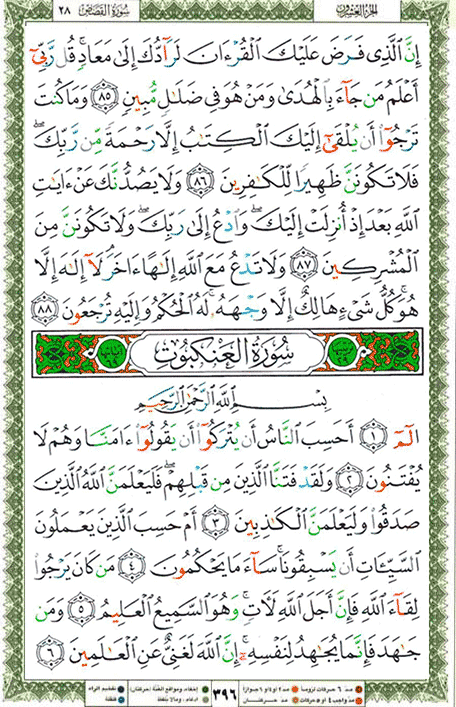 الجزء العشرون سورة القصص ٢٨
إِنَّ ٱلَّذِى فَرَضَ عَلَيْكَ ٱلْقُرْءَانَ لَرَآدُّكَ إِلَىٰ مَعَادٍ قُل رَّبِّىٓ
أَعْلَمُ مَن جَآءَ بِٱلْهُدَىٰ وَمَنْ هُوَ فِى ضَلَٰلٍ مُّبِينٍ ٨٥ وَمَا كُنتَ
تَرْجُوٓا۟ أَن يُلْقَىٰٓ إِلَيْكَ ٱلْكِتَٰبُ إِلَّا رَحْمَةً مِّن رَّبِّكَ ۖ
فَلَا تَكُونَنَّ ظَهِيرًا لِّلْكَٰفِرِينَ ٨٦ وَلَا يَصُدُّنَّكَ عَنْ ءَايَٰتِ
ٱللَّهِ بَعْدَ إِذْ أُنزِلَتْ إِلَيْكَ ۖ وَٱدْعُ إِلَىٰ رَبِّكَ ۖ وَلَا تَكُونَنَّ مِنَ
ٱلْمُشْرِكِينَ ٨٧ وَلَا تَدْعُ مَعَ ٱللَّهِ إِلَٰهًا ءَاخَرَ ۘ لَآ إِلَٰهَ إِلَّا
هُوَ ۚ كُلُّ شَىْءٍ هَالِكٌ إِلَّا وَجْهَهُۥ ۚ لَهُ ٱلْحُكْمُ وَإِلَيْهِ تُرْجَعُونَ ٨٨
سُورَةُ العَنكَبُوتِ
بِسْمِ ٱللَّهِ ٱلرَّحْمَٰنِ ٱلرَّحِيمِ
الٓمٓ ١ أَحَسِبَ ٱلنَّاسُ أَن يُتْرَكُوٓا۟ أَن يَقُولُوٓا۟ ءَامَنَّا وَهُمْ لَا
يُفْتَنُونَ ٢ وَلَقَدْ فَتَنَّا ٱلَّذِينَ مِن قَبْلِهِمْ ۖ فَلَيَعْلَمَنَّ ٱللَّهُ ٱلَّذِينَ
صَدَقُوا۟ وَلَيَعْلَمَنَّ ٱلْكَٰذِبِينَ ٣ أَمْ حَسِبَ ٱلَّذِينَ يَعْمَلُونَ
ٱلسَّيِّـَٔاتِ أَن يَسْبِقُونَا ۚ سَآءَ مَا يَحْكُمُونَ ٤ مَن كَانَ يَرْجُوا۟
لِقَآءَ ٱللَّهِ فَإِنَّ أَجَلَ ٱللَّهِ لَءَاتٍ ۚ وَهُوَ ٱلسَّمِيعُ ٱلْعَلِيمُ ٥ وَمَن
جَٰهَدَ فَإِنَّمَا يُجَٰهِدُ لِنَفْسِهِۦٓ ۚ إِنَّ ٱللَّهَ لَغَنِىٌّ عَنِ ٱلْعَٰلَمِينَ ٦
٣٩٦